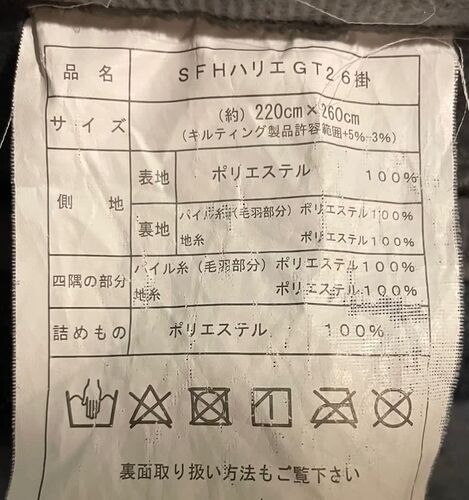 品名 SFHハリエGT26掛
サイズ (約) 220cm×260cm
(キルティング製品許容範囲+5%-3%)
側地 表地 ポリエステル 100%
裏地 パイル糸(毛羽部分) ポリエステル100%
地糸 ポリエステル100%
四隅の部分 パイル糸(毛羽部分) ポリエステル100%
地糸 ポリエステル100%
詰めもの ポリエステル 100%
裏面取り扱い方法もご覧下さい